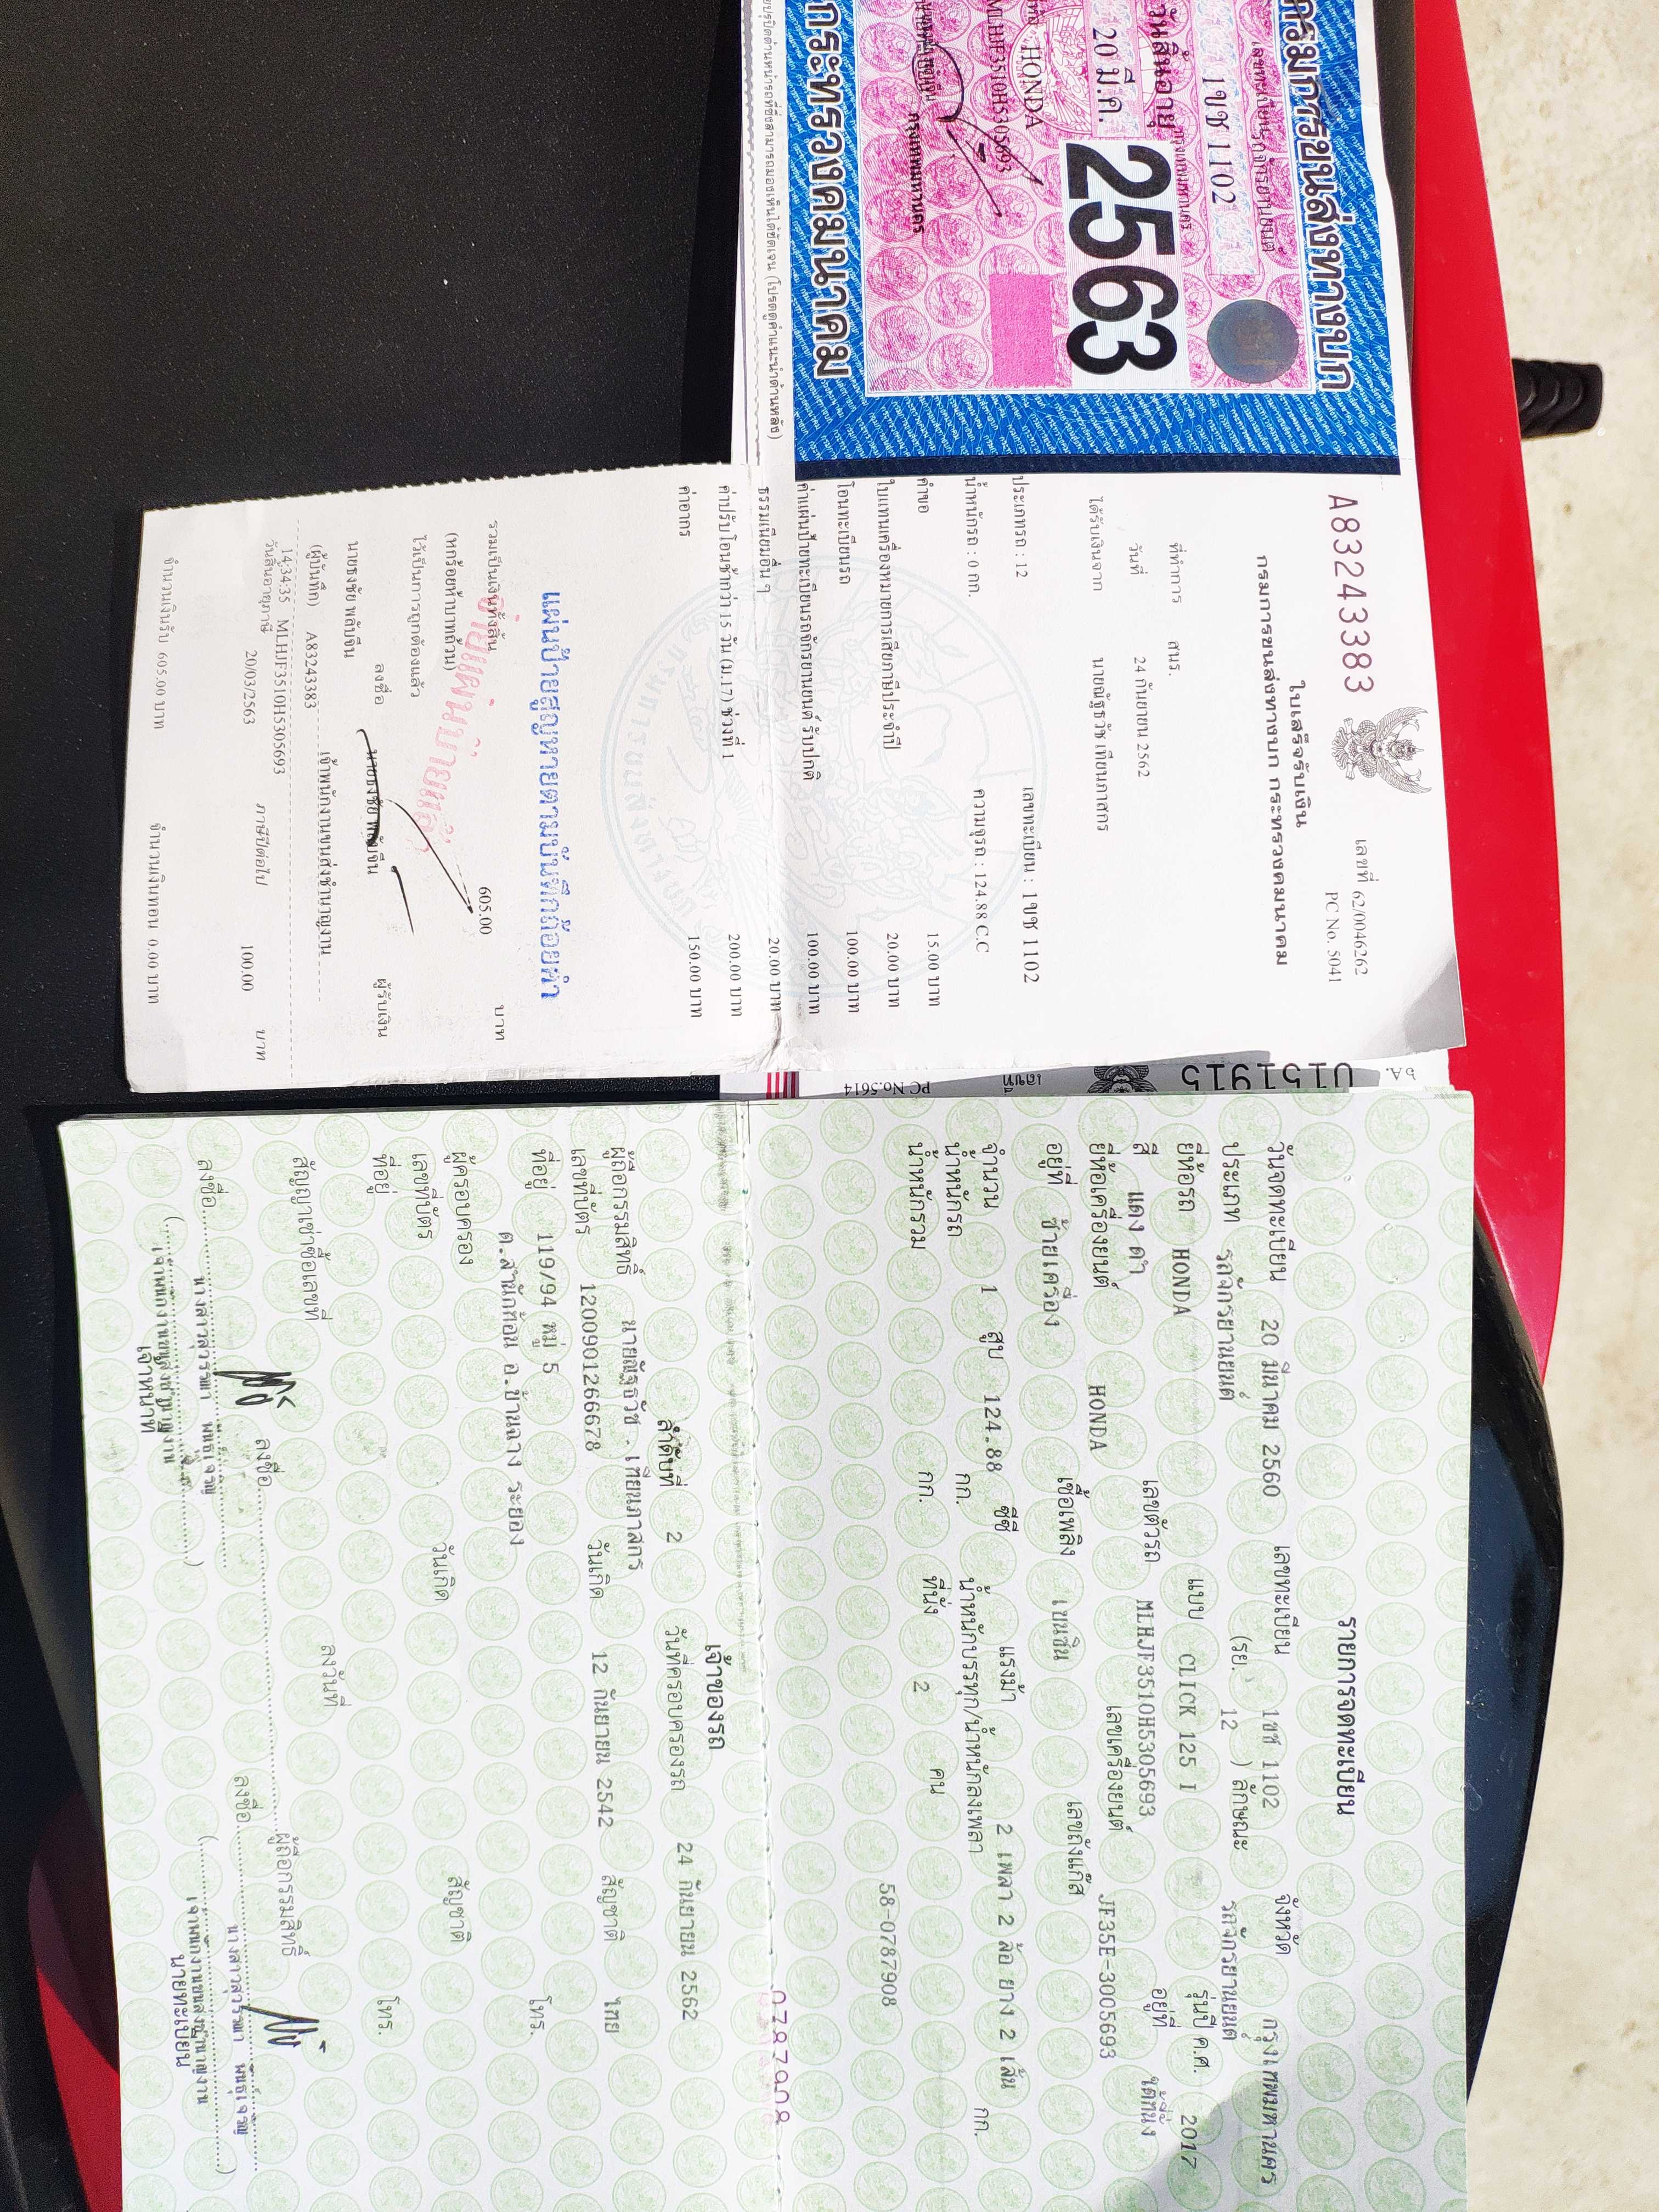 กรมการขนส่งทางบก
เลขทะเบียนรถจักรยานยนต์
1ขช 1102
กรุงเทพมหานคร
วันสิ้นอายุ
20 มี.ค.
2563
HONDA
MLHJF3510H5305693
กรุงเทพมหานคร
กระทรวงคมนาคม
(โปรดดูคำแนะนำด้านหลัง)
A83243383
เลขที่ 62/0046262
PC No. 5041
ใบเสร็จรับเงิน
กรมการขนส่งทางบก กระทรวงคมนาคม
ที่ทำการ สนร.
วันที่ 24 กันยายน 2562
ได้รับเงินจาก นายณัฐธวัช เทียนภาสกร
ประเภทรถ : 12 เลขทะเบียน : 1 ขช 1102
น้ำหนักรถ : 0 กก. ความจุรถ : 124.88 C.C
คำขอ 15.00 บาท
ใบแทนเครื่องหมายการเสียภาษีประจำปี 20.00 บาท
โอนทะเบียนรถ 100.00 บาท
ค่าแผ่นป้ายทะเบียนรถจักรยานยนต์ รับปกติ 100.00 บาท
ธรรมเนียมอื่น ๆ 20.00 บาท
ค่าปรับโอนช้ากว่า 15 วัน (ม.17) ช่วงที่ 1 200.00 บาท
ค่าอากร 150.00 บาท
แผ่นป้ายสูญหายตามบันทึกถ้อยคำ
จ่ายแผ่นป้ายแล้ว
รวมเป็นเงินทั้งสิ้น 605.00 บาท
(หกร้อยห้าบาทถ้วน)
ไว้เป็นการถูกต้องแล้ว
ลงชื่อ ผู้รับเงิน
นายธงชัย พลับจีน
นายธงชัย พลับจีน
(ผู้บันทึก) เจ้าพนักงานขนส่งชำนาญงาน
A83243383
14:34:35 MLHJF3510H5305693
วันสิ้นอายุภาษี 20/03/2563 ภาษีปีต่อไป 100.00 บาท
จำนวนเงินรับ 605.00 บาท จำนวนเงินทอน 0.00 บาท
0151915
เลขที่
PC No.5614
รายการจดทะเบียน
วันจดทะเบียน 20 มีนาคม 2560 เลขทะเบียน 1ขช 1102 จังหวัด กรุงเทพมหานคร
ประเภท รถจักรยานยนต์ (รย. 12 ) ลักษณะ รถจักรยานยนต์
ยี่ห้อรถ HONDA แบบ CLICK 125 I รุ่นปี ค.ศ. 2017
สี แดง ดำ เลขตัวรถ MLHJF3510H5305693 อยู่ที่ ใต้ที่นั่ง
ยี่ห้อเครื่องยนต์ HONDA เลขเครื่องยนต์ JF35E-3005693
อยู่ที่ ซ้ายเครื่อง เชื้อเพลิง เบนซิน เลขถังแก๊ส
จำนวน 1 สูบ 124.88 ซีซี แรงม้า 2 เพลา 2 ล้อ ยาง 2 เส้น
น้ำหนักรถ กก. น้ำหนักบรรทุก/น้ำหนักลงเพลา กก.
น้ำหนักรวม กก. ที่นั่ง 2 คน
58-0787908
0787908
เจ้าของรถ
ลำดับที่ 2 วันที่ครอบครองรถ 24 กันยายน 2562
ผู้ถือกรรมสิทธิ์ นายณัฐธวัช เทียนภาสกร
เลขที่บัตร 1200901266678 วันเกิด 12 กันยายน 2542 สัญชาติ ไทย
ที่อยู่ 119/94 หมู่ 5 โทร.
ต.สำนักท้อน อ.บ้านฉาง ระยอง
ผู้ครอบครอง
เลขที่บัตร วันเกิด สัญชาติ
ที่อยู่ โทร.
สัญญาเช่าซื้อเลขที่ ลงวันที่
ลงชื่อ ผู้ถือกรรมสิทธิ์
ลงชื่อ ลงชื่อ
เจ้าพนักงานขนส่งชำนาญงาน เจ้าพนักงานขนส่งชำนาญงาน
เจ้าหน้าที่ นายทะเบียน